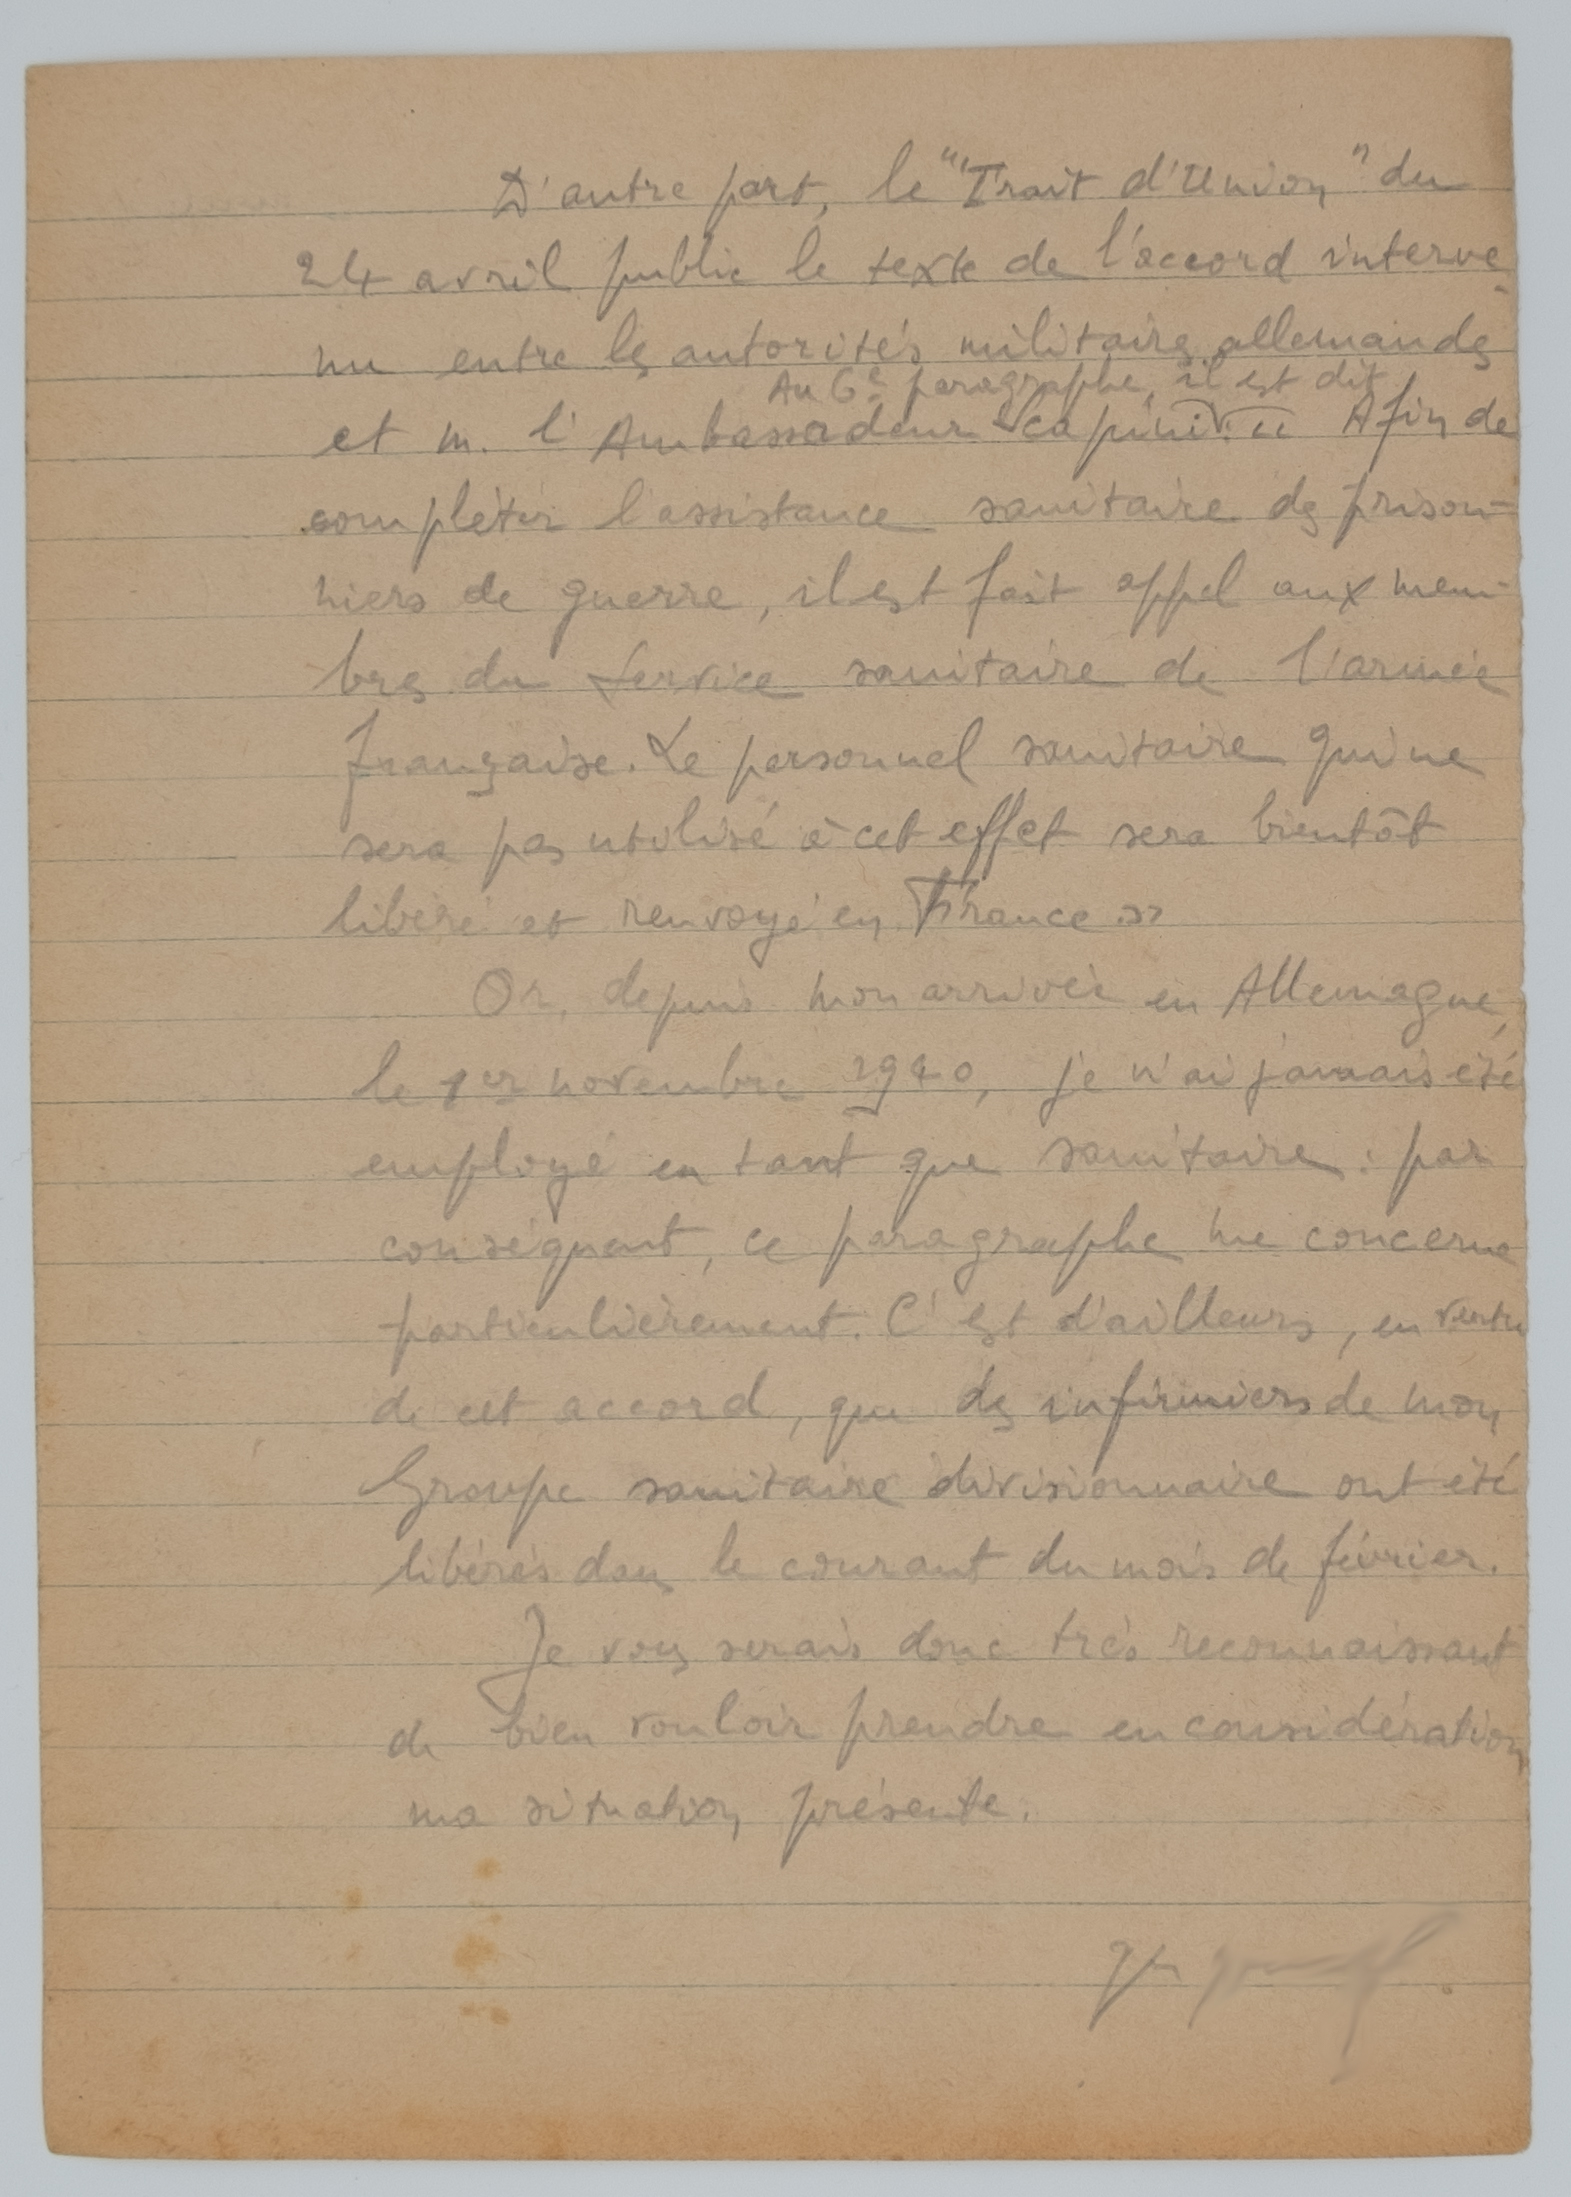 D'autre part, le "Trait d'Union" du
24 avril publie le texte de l'accord interve-
nu entre les autorités militaires allemandes
Au 6e paragraphe, il est dit
et M. l'Ambassadeur Scapini. « Afin de
compléter l'assistance sanitaire des prison=
niers de guerre, il est fait appel aux mem-
bres du Service sanitaire de l'armée
française. Le personnel sanitaire qui ne
sera pas utilisé à cet effet sera bientôt
libéré et renvoyé en France »
Or, depuis mon arrivée en Allemagne,
le 1er novembre 1940, je n'ai jamais été
employé en tant que sanitaire : par
conséquent, ce paragraphe me concerne
particulièrement. C'est d'ailleurs, en vertu
de cet accord, que des infirmiers de mon
Groupe sanitaire divisionnaire ont été
libérés dans le courant du mois de février.
Je vous serais donc très reconnaissant
de bien vouloir prendre en considération
ma situation présente.